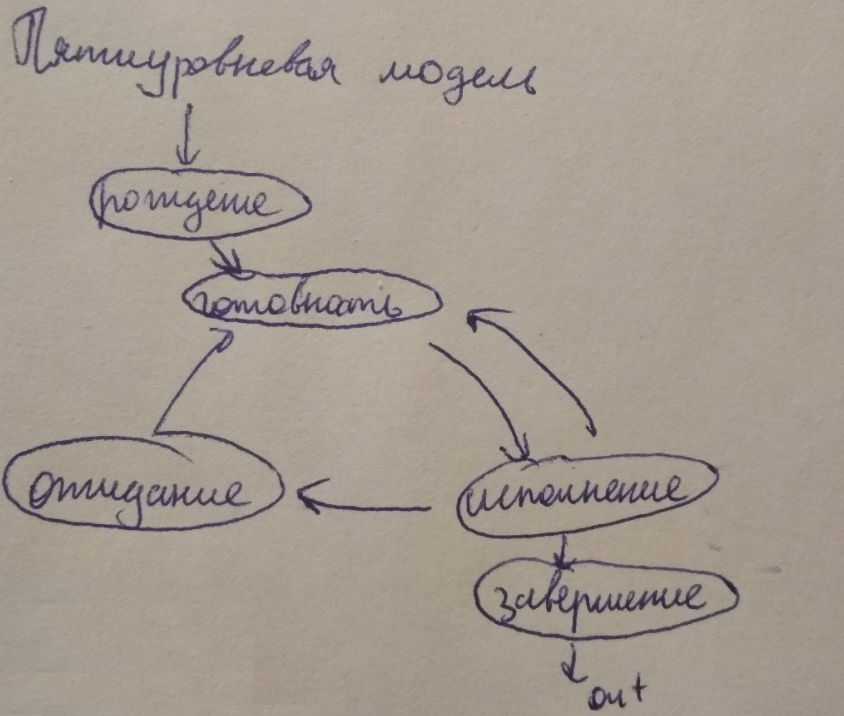 Пятиуровневая модель
рождение
готовность
ожидание
исполнение
завершение
out